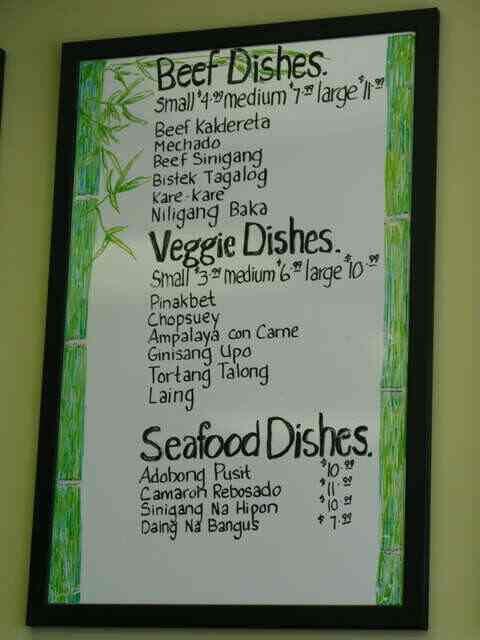 Beef Dishes.
Small $4.99 medium $7.99 large $11.99
Beef Kaldereta
Mechado
Beef Sinigang
Bistek Tagalog
Kare-kare
Niligang Baka
Veggie Dishes.
Small $3.99 medium $6.99 large $10.99
Pinakbet
Chopsuey
Ampalaya con Carne
Ginisang Upo
Tortang Talong
Laing
Seafood Dishes.
Adobong Pusit $10.99
Camaron Rebosado $11.99
Sinigang Na Hipon $10.99
Daing Na Bangus $7.99